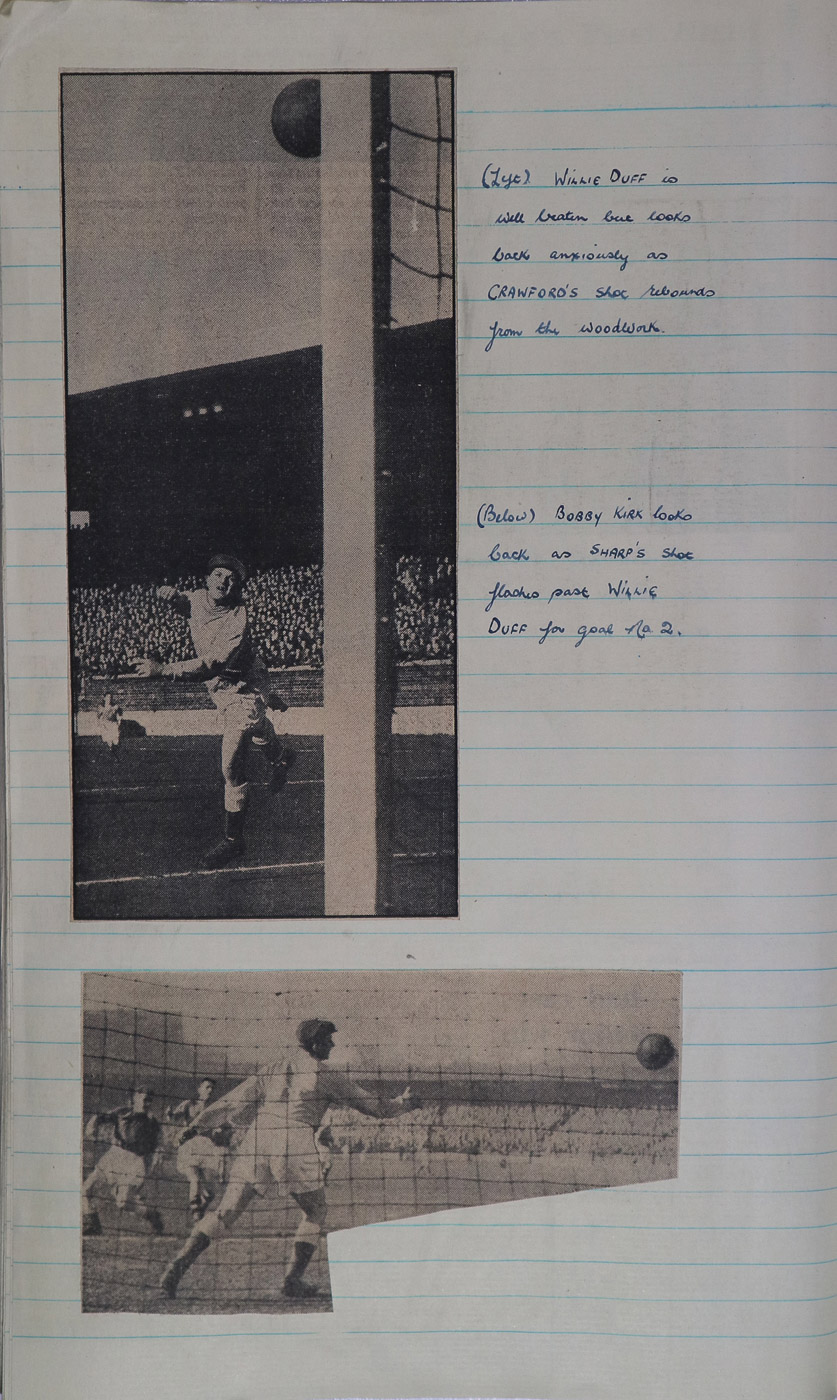 (Left) WILLIE DUFF is
well beaten but looks
back anxiously as
CRAWFORD'S shot rebounds
from the woodwork.
(Below) BOBBY KIRK looks
back as SHARP'S shot
flashes past WILLIE
DUFF for goal No 2.